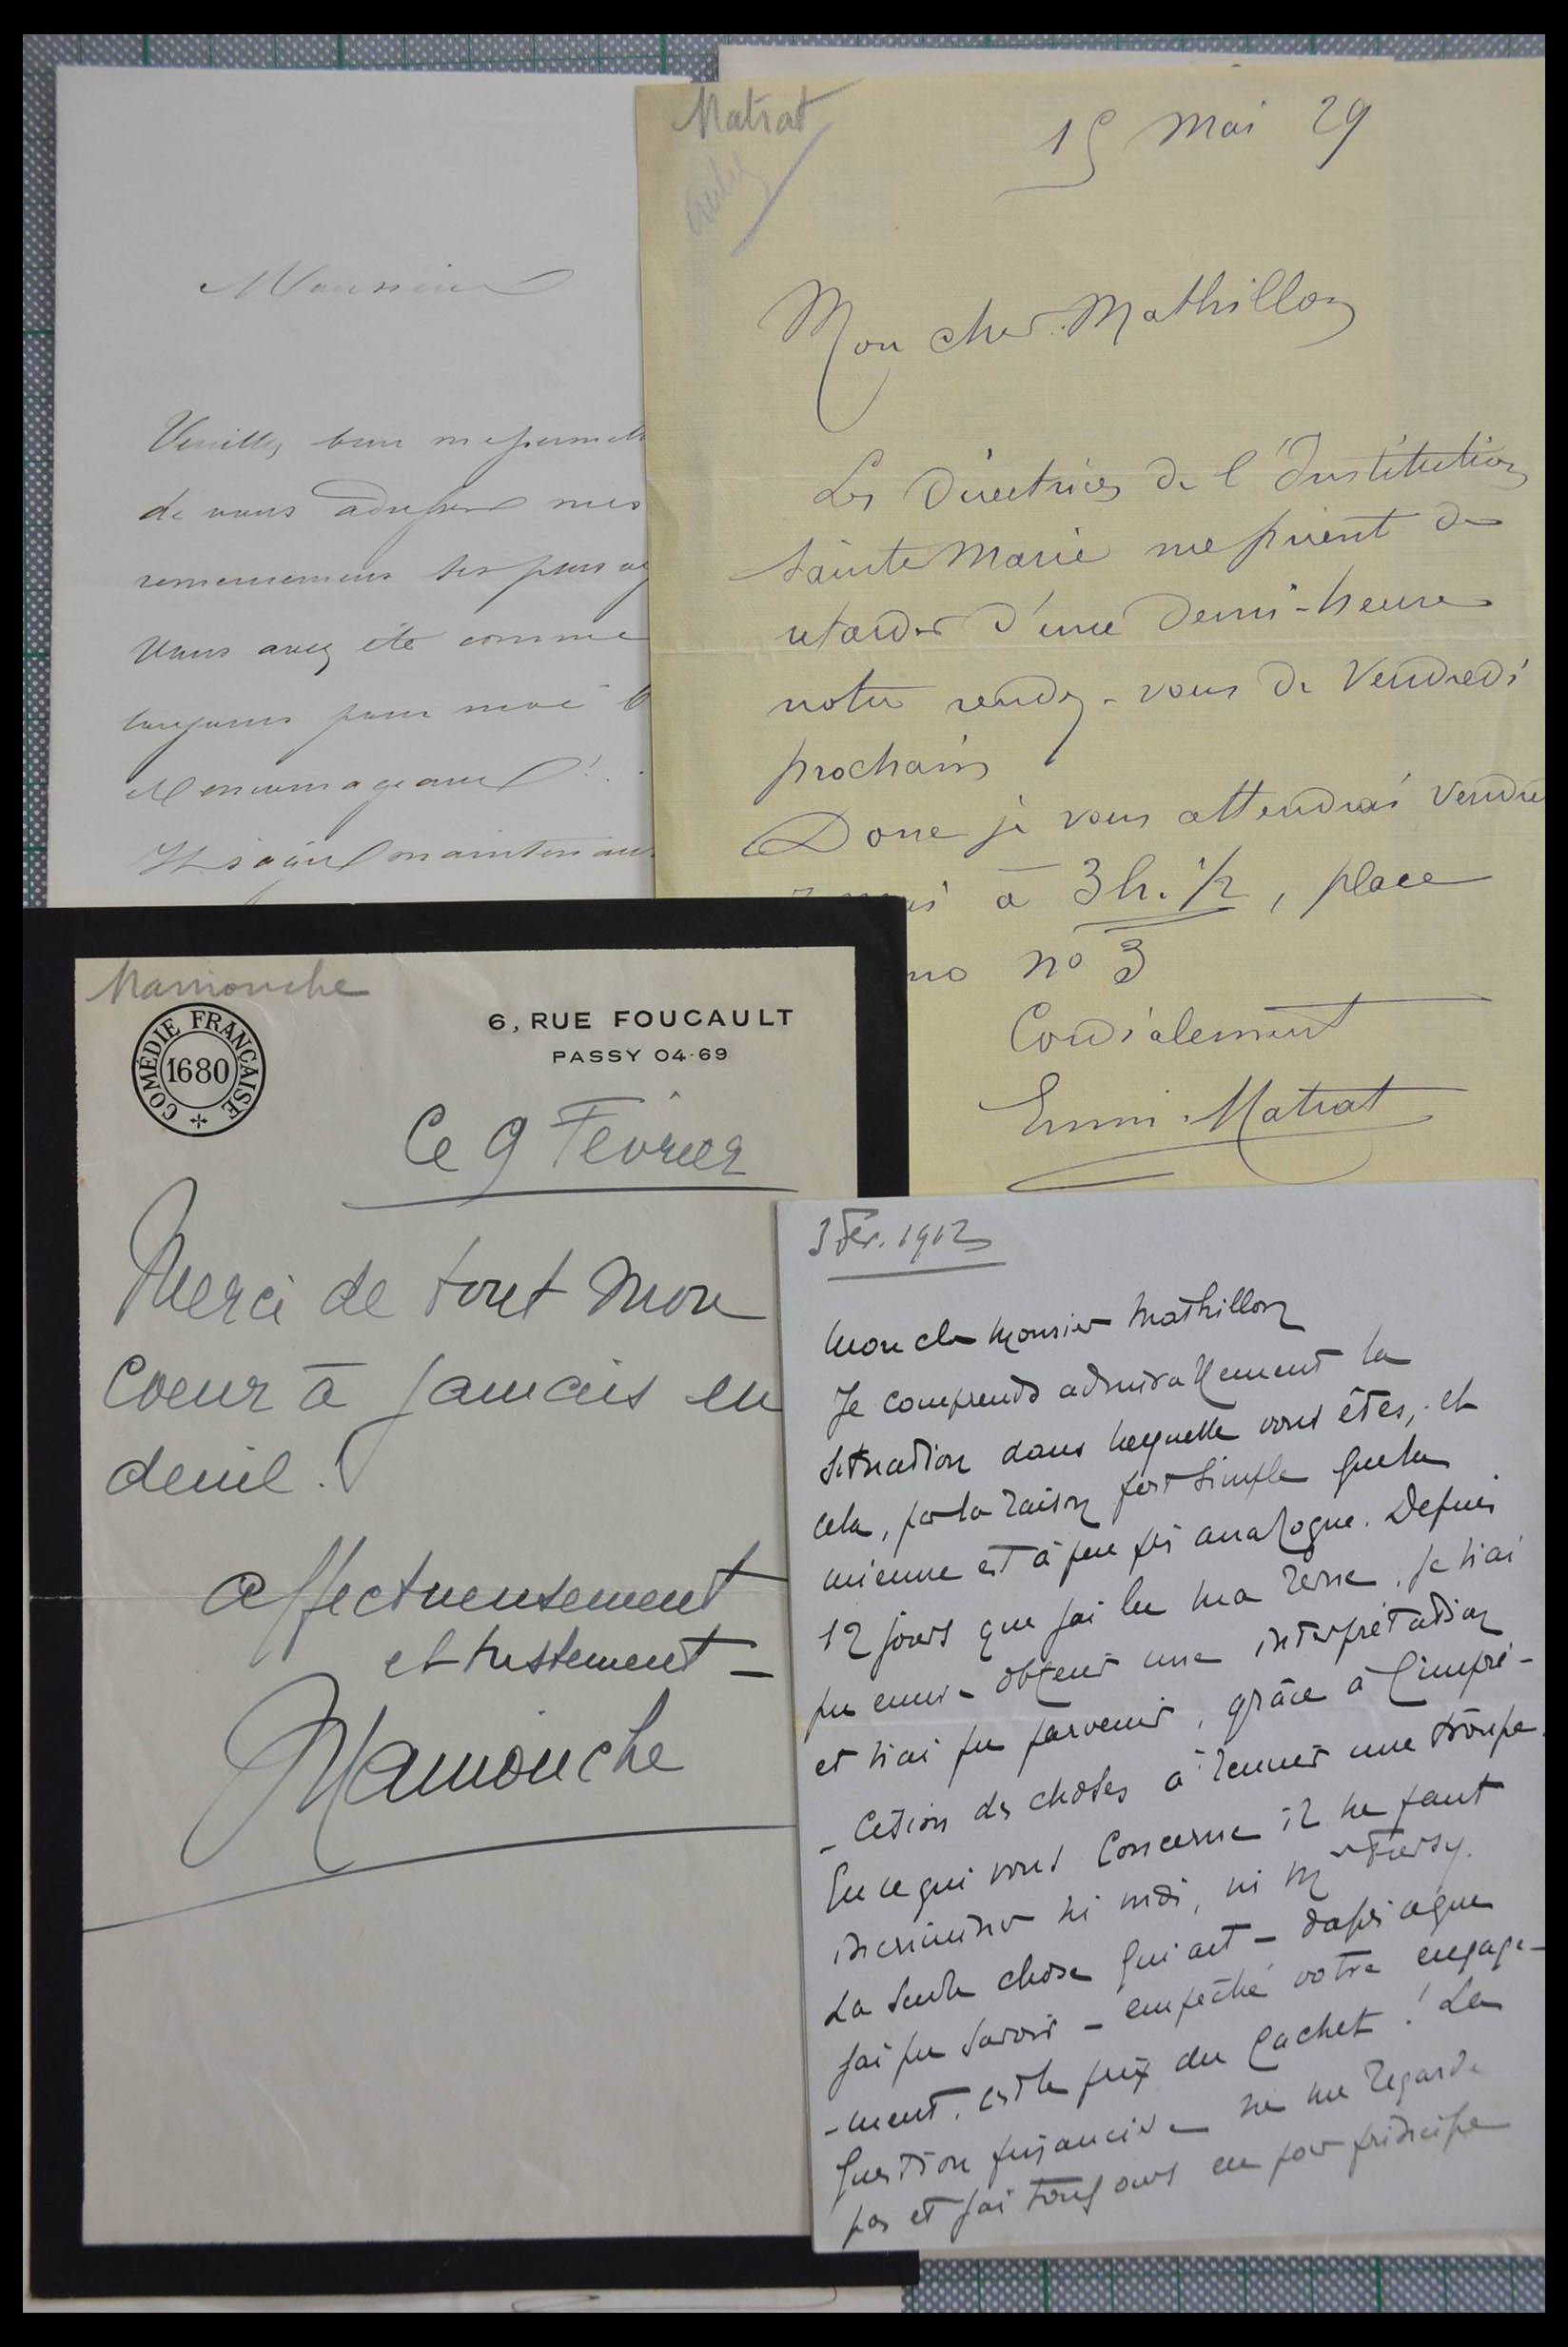 Monsieur
Veuillez bien me permett
de vous adresser mes
remerciemens les plus
Vous avez été comme
toujours pour moi
encourageant !
maintenant
Matrat
15 Mai 29
Mon cher Mathillon
Les Directrices de l'Institution
Sainte Marie me prient de
retarder d'une demi-heure
notre rendez-vous de Vendredi
prochain
Donc je vous attendrai Vendre
à 3h. 1/2, place
no 3
Cordialement
Matrat
Mamouche
COMÉDIE FRANÇAISE
1680
6, RUE FOUCAULT
PASSY 04-69
Ce 9 Février
Merci de tout mon
Coeur à jamais en
deuil.
affectueusement
et tristement -
Mamouche
3 Fév. 1912
Mon cher Monsieur Mathillon
Je comprends admirablement la
situation dans laquelle vous êtes, et
cela, par la raison fort simple que la
mienne est à peu près analogue. Depuis
12 jours que j'ai lu ma revue, je n'ai
pu encore obtenir une interprétation
et n'ai pu parvenir, grâce à l'impré-
-cision des choses à réunir une troupe.
En ce qui vous concerne il ne faut
incriminer ni moi, ni Mr Fursy.
La seule chose qui ait - d'après ce que
j'ai pu savoir - empêché votre engage-
-ment, c'est le prix du cachet ! La
question financière ne me regarde
pas et j'ai toujours eu pour principe